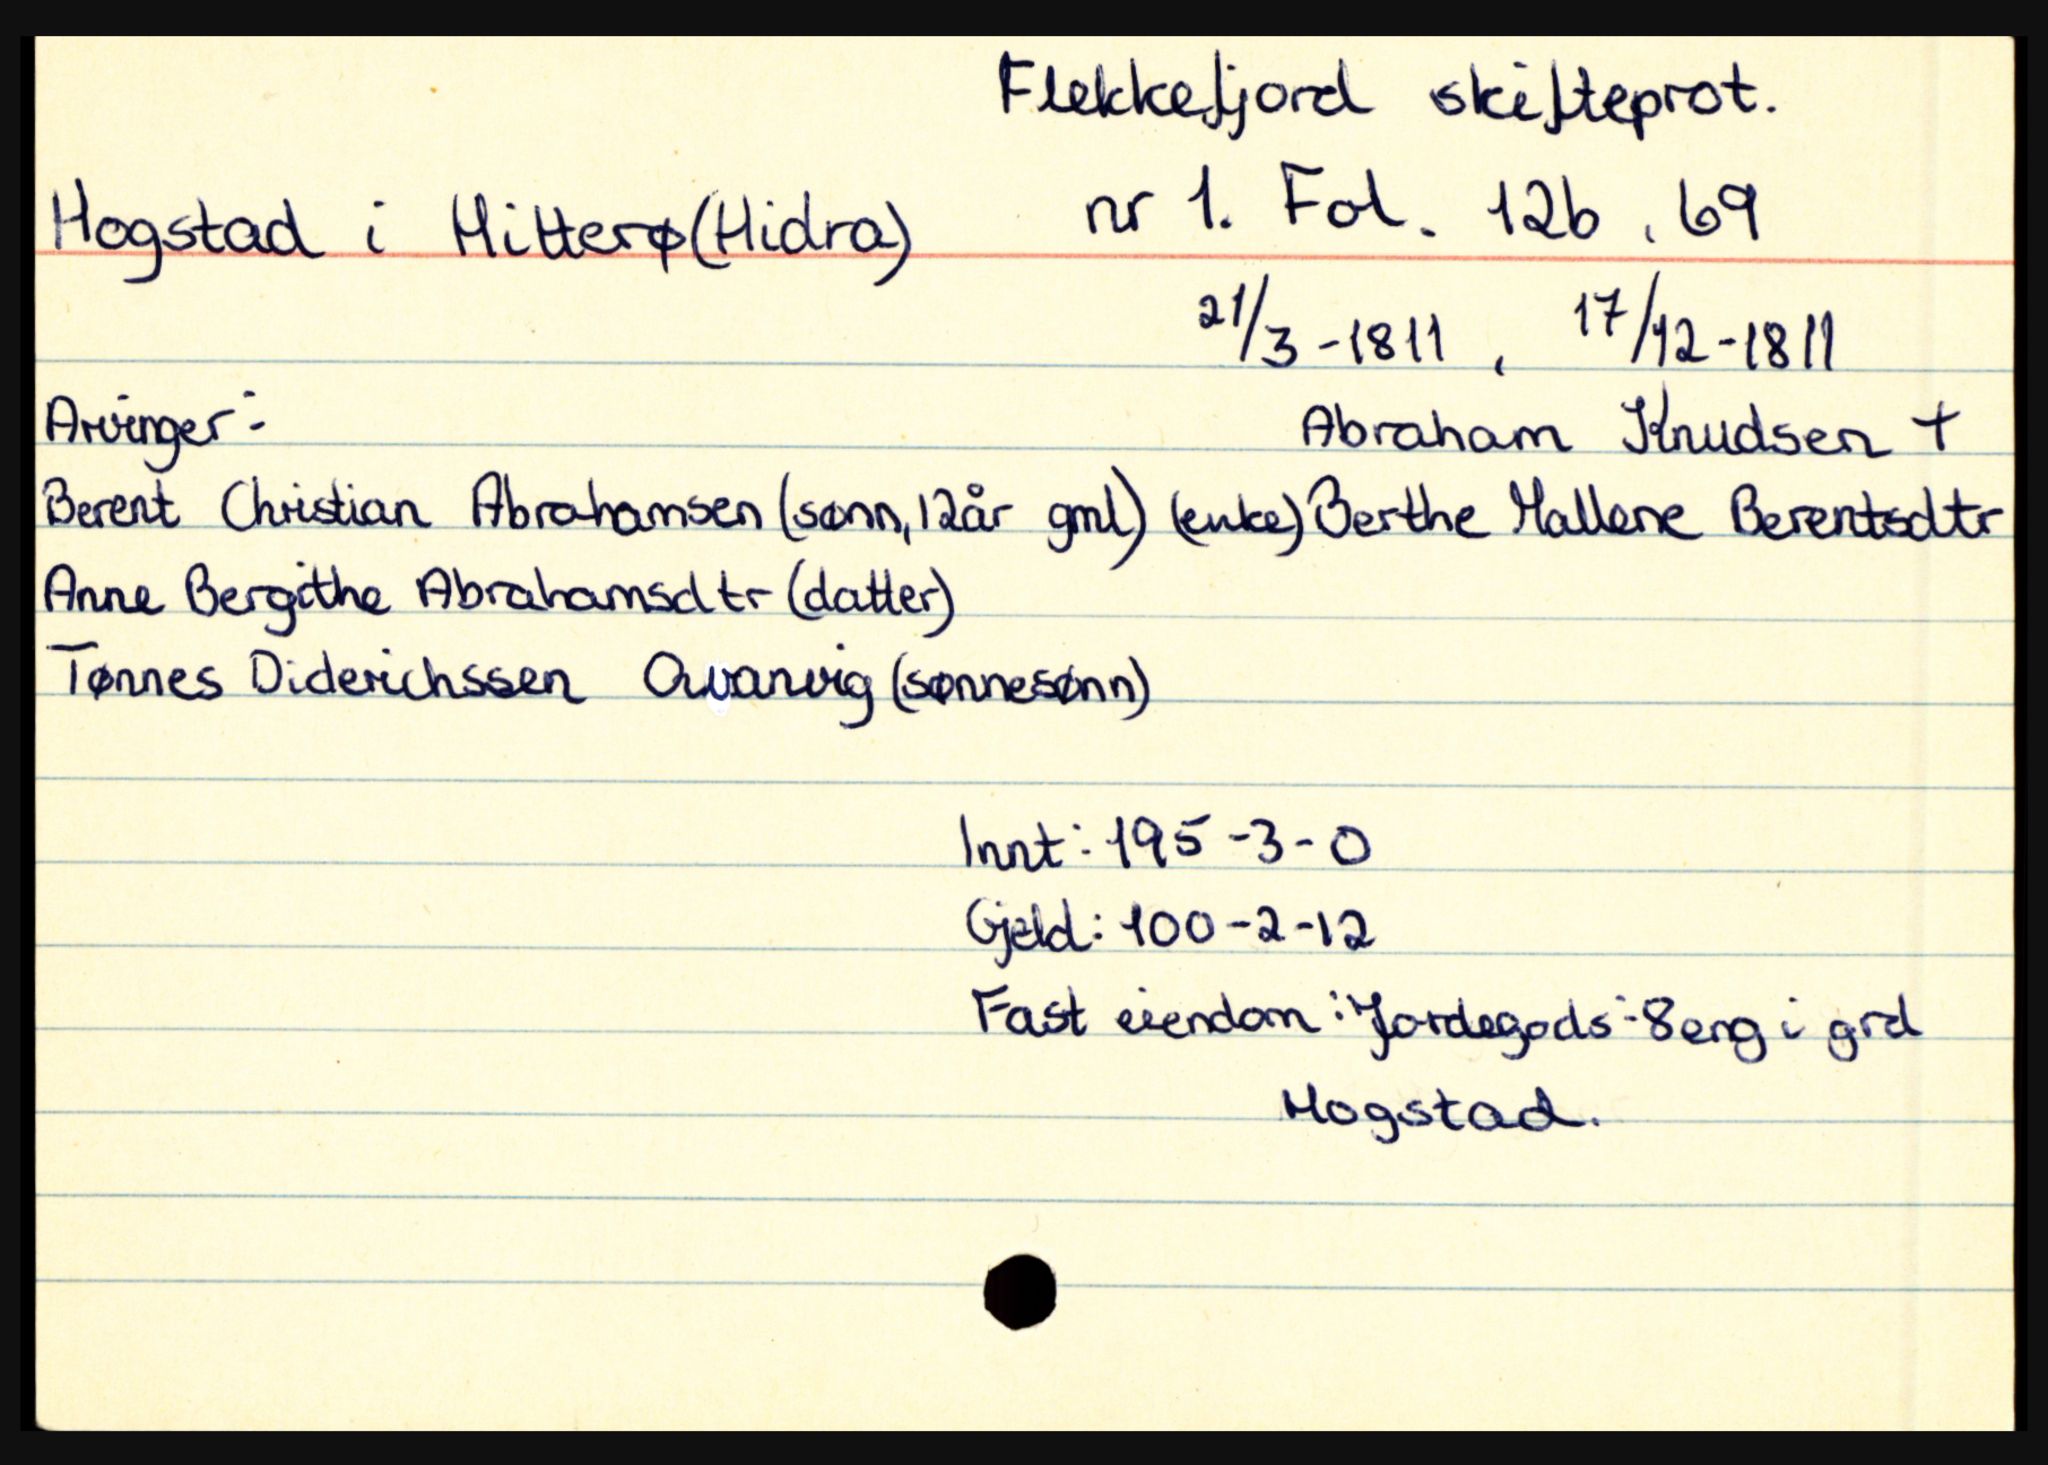 Flekkefjord skifteprot.
Hogstad i Hitterø (Hidra) nr 1. Fol. 12b, 69
21/3-1811, 17/12-1811
Arvinger: Abraham Knudsen +
Berent Christian Abrahamsen (sønn, 12år gml) (enke) Berthe Mallene Berentsdtr
Anne Bergithe Abrahamsdtr (datter)
Tønnes Diderichssen Qvanvig (sønnesønn)
Innt: 195-3-0
Gjeld: 100-2-12
Fast eiendom: Jordegods: 8 eng i grd
Hogstad.